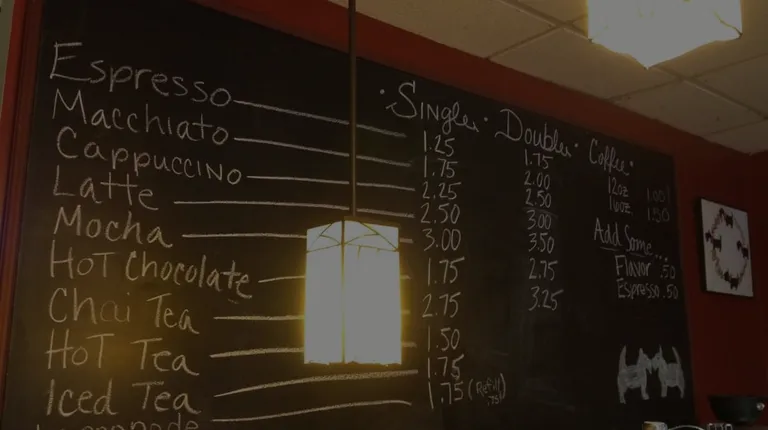 · Single · Double · Coffee ·
Espresso 1.25 1.75
Macchiato 1.75 2.00
Cappuccino 2.25 2.50
Latte 2.50 3.00
Mocha 3.00 3.50
Hot Chocolate 1.75 2.75
Chai Tea 2.75 3.25
Hot Tea 1.50
Iced Tea 1.75
1.75 (Refill .75)
12oz 1.00
16oz 1.50
Add Some...
Flavor .50
Espresso .50